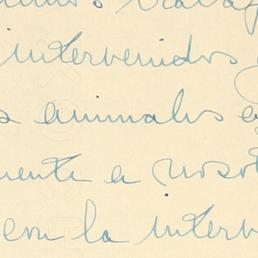 intervenidos
s animales e
mente a nosot
con la interv